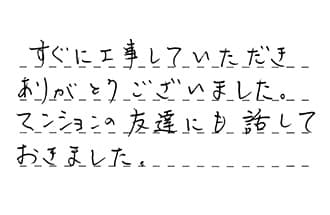 すぐに工事していただき
ありがとうございました。
マンションの友達にも話して
おきました。